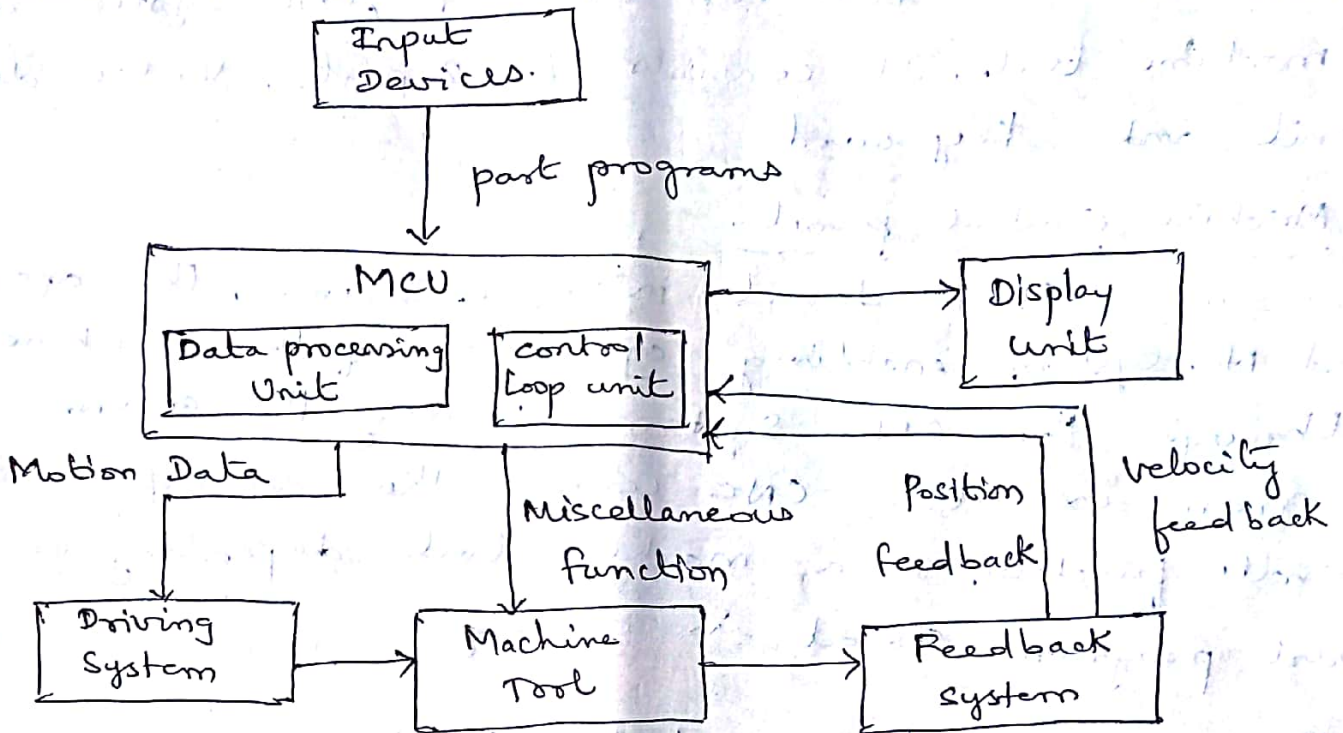 Input
Devices.
part programs
MCU.
Data processing
Unit
control
Loop unit
Display
unit
Motion Data
Miscellaneous
function
Position
feedback
velocity
feed back
Driving
System
Machine
Tool
Feedback
system